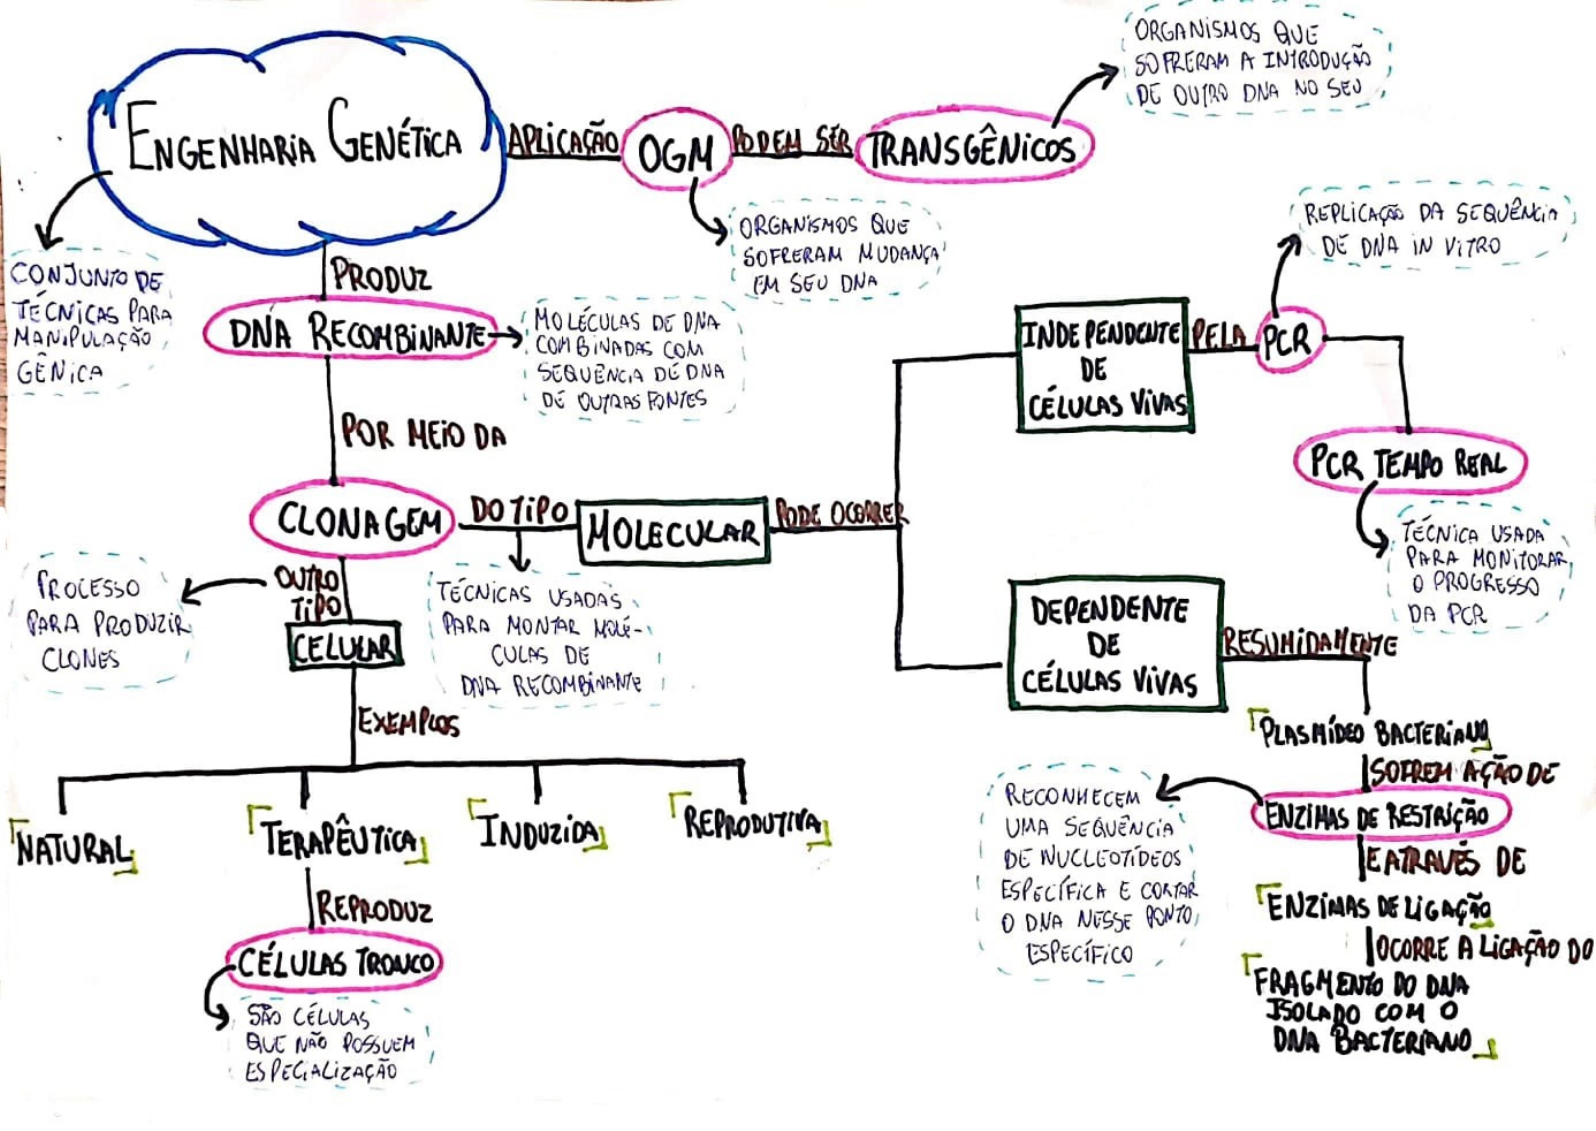 ENGENHARIA GENÉTICA
APLICAÇÃO
OGM
PODEM SER
TRANSGÊNICOS
ORGANISMOS QUE
SOFRERAM A INTRODUÇÃO
DE OUTRO DNA NO SEU
ORGANISMOS QUE
SOFRERAM MUDANÇA
EM SEU DNA
CONJUNTO DE
TÉCNICAS PARA
MANIPULAÇÃO
GÊNICA
PRODUZ
DNA RECOMBINANTE
MOLÉCULAS DE DNA
COMBINADAS COM
SEQUÊNCIA DE DNA
DE OUTRAS FONTES
POR MEIO DA
CLONAGEM
PROCESSO
PARA PRODUZIR
CLONES
DO TIPO
MOLECULAR
TÉCNICAS USADAS
PARA MONTAR MOLÉ-
CULAS DE
DNA RECOMBINANTE
PODE OCORRER
INDEPENDENTE
DE
CÉLULAS VIVAS
PELA
PCR
REPLICAÇÃO DA SEQUÊNCIA
DE DNA IN VITRO
PCR TEMPO REAL
TÉCNICA USADA
PARA MONITORAR
O PROGRESSO
DA PCR
DEPENDENTE
DE
CÉLULAS VIVAS
RESUMIDAMENTE
PLASMÍDEO BACTERIANO
SOFREM AÇÃO DE
ENZIMAS DE RESTRIÇÃO
RECONHECEM
UMA SEQUÊNCIA
DE NUCLEOTÍDEOS
ESPECÍFICA E CORTAR
O DNA NESSE PONTO
ESPECÍFICO
E ATRAVÉS DE
ENZIMAS DE LIGAÇÃO
OCORRE A LIGAÇÃO DO
FRAGMENTO DO DNA
ISOLADO COM O
DNA BACTERIANO
OUTRO
TIPO
CELULAR
EXEMPLOS
NATURAL
TERAPÊUTICA
INDUZIDA
REPRODUTIVA
REPRODUZ
CÉLULAS TRONCO
SÃO CÉLULAS
QUE NÃO POSSUEM
ESPECIALIZAÇÃO